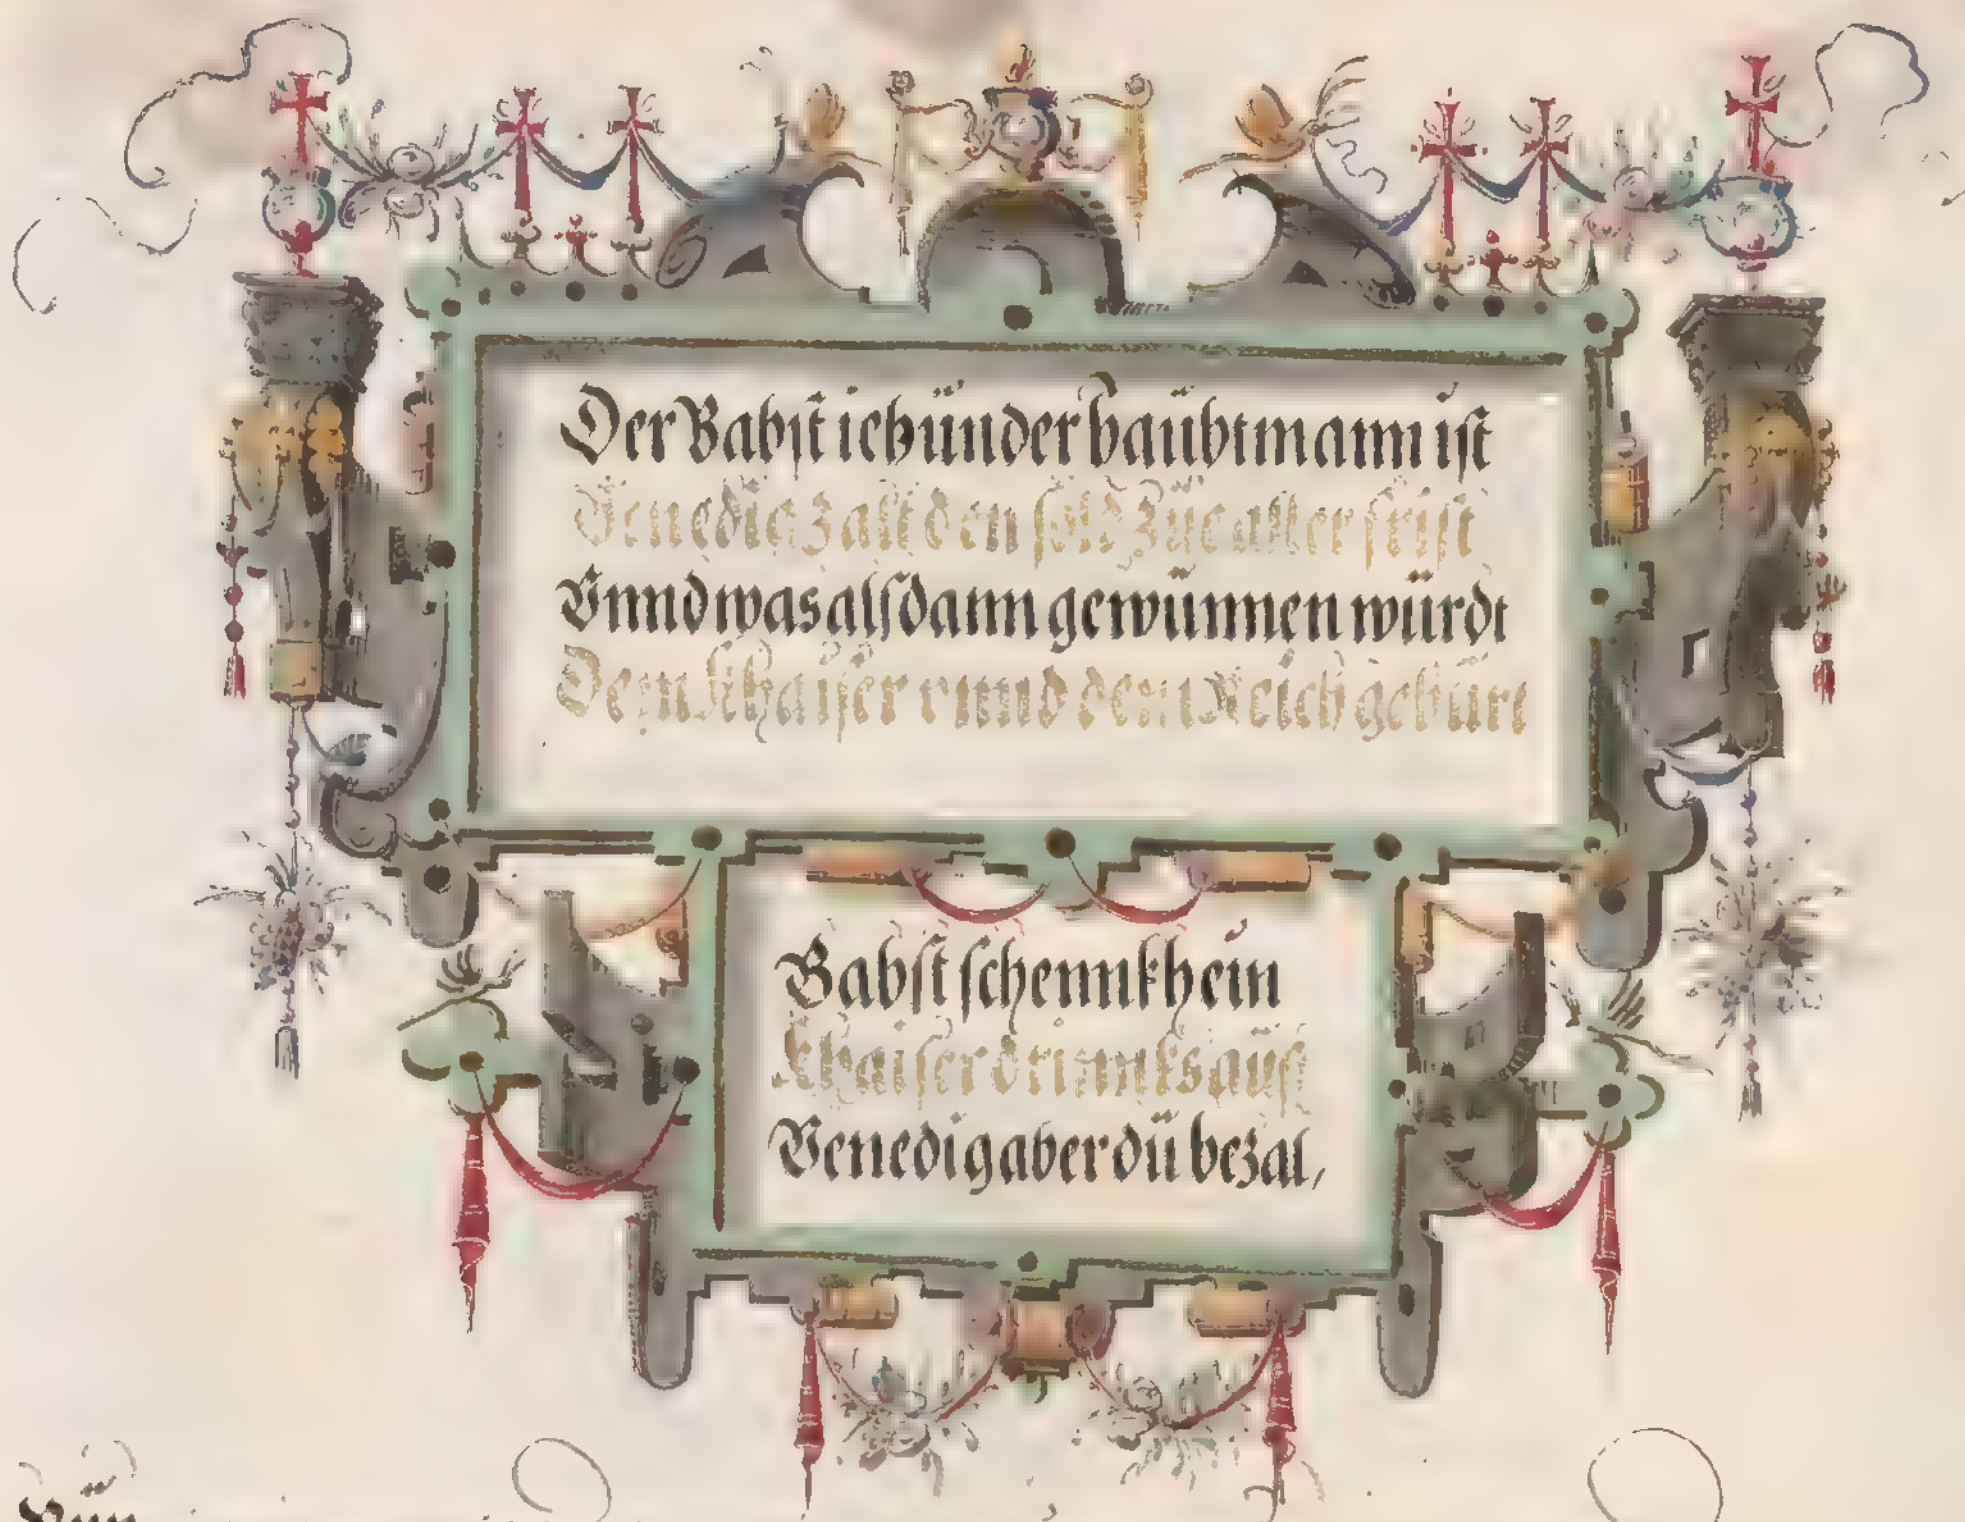 Der Babst ietzünder haübtmann ist
Venedig zalt den sold zue aller frist
Vnnd was alsdann gewünnen würdt
Dem Khaiser vnnd dem Reich gebürt
Babst schennkh ein
Khaiser drinnks aüs
Venedig aber dü bezal,